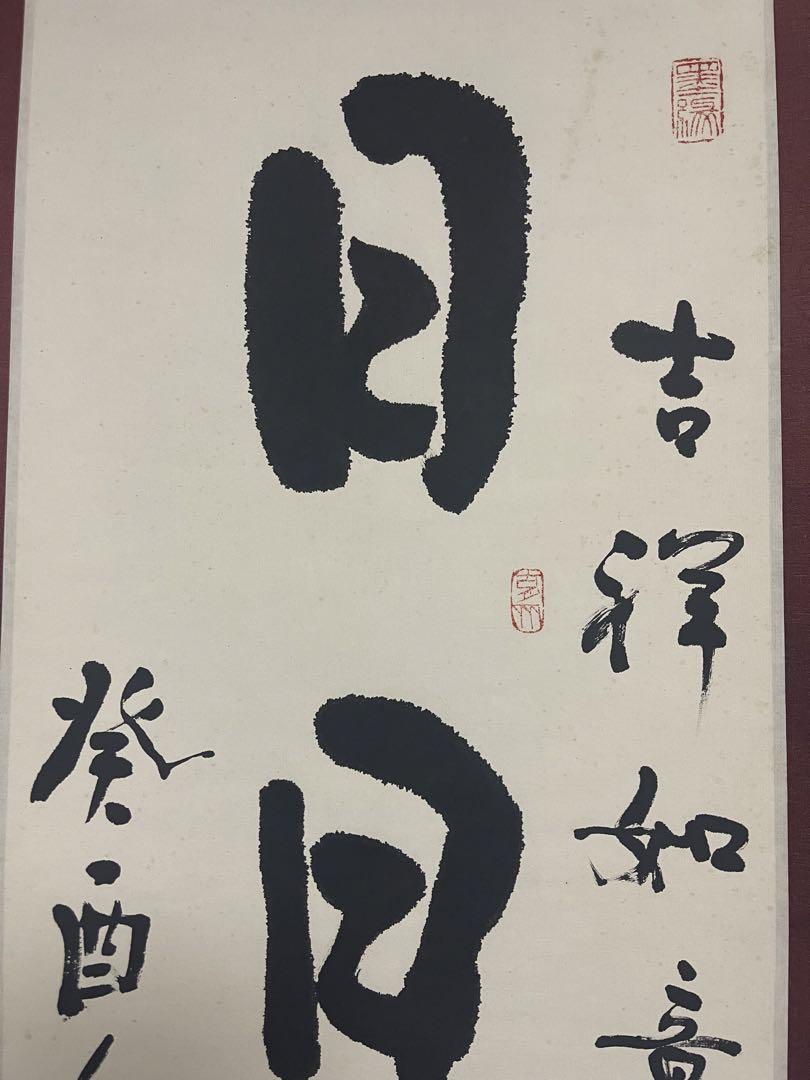 墨緣
吉祥如意
日日
癸酉